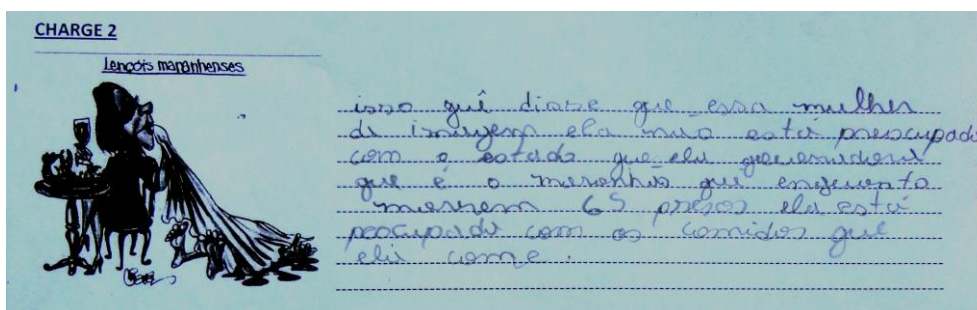 CHARGE 2
Lençóis maranhenses
isso quê disse que essa mulher
da imagem ela não está preocupada
com o estado que ela governadora
que é o maranhão quê enquanto
morrem 65 presos ela está
peocupada com as comidas que
ela come.